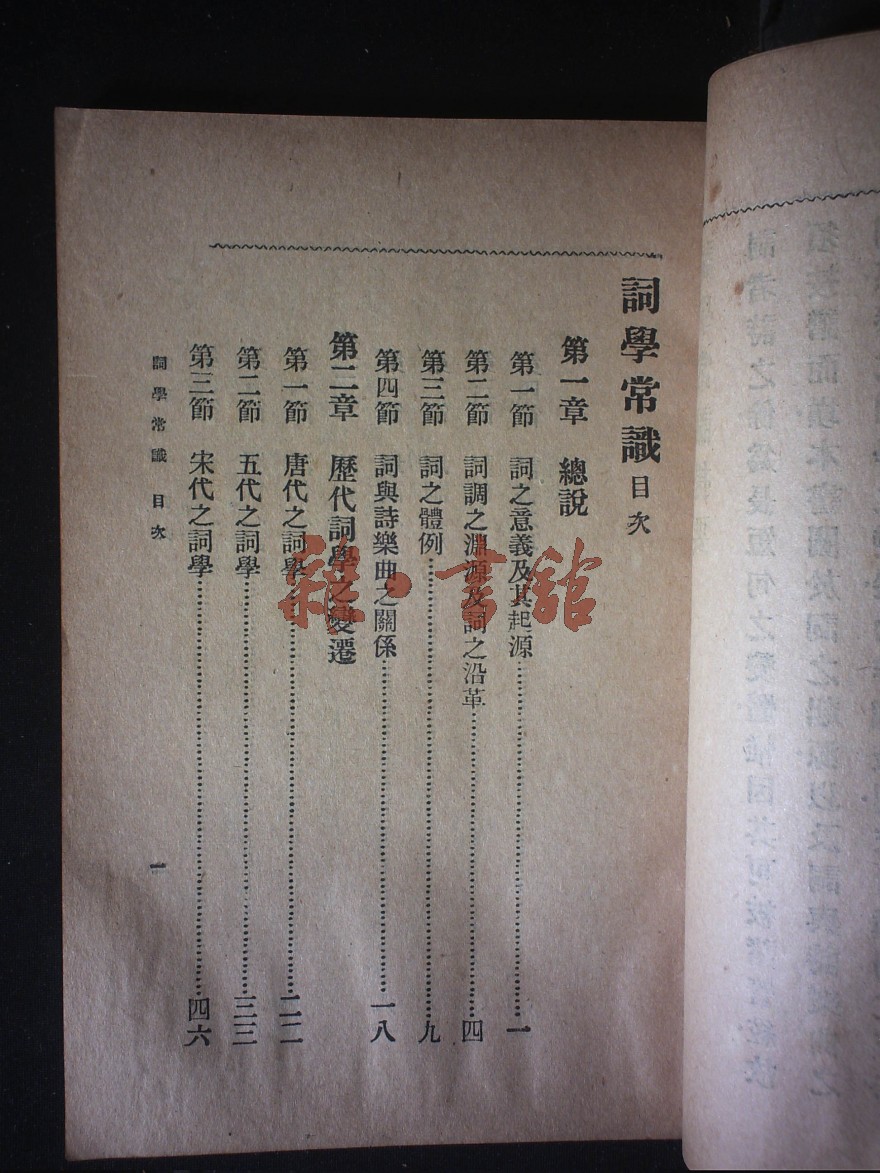 詞學常識 目次
第一章 總說
第一節 詞之意義及其起源 一
第二節 詞調之淵源及詞之沿革 四
第三節 詞之體例 九
第四節 詞與詩樂曲之關係 一八
第二章 歷代詞學之變遷
第一節 唐代之詞學 二二
第二節 五代之詞學 三三
第三節 宋代之詞學 四六
詞學常識 目次 一
雜·書館